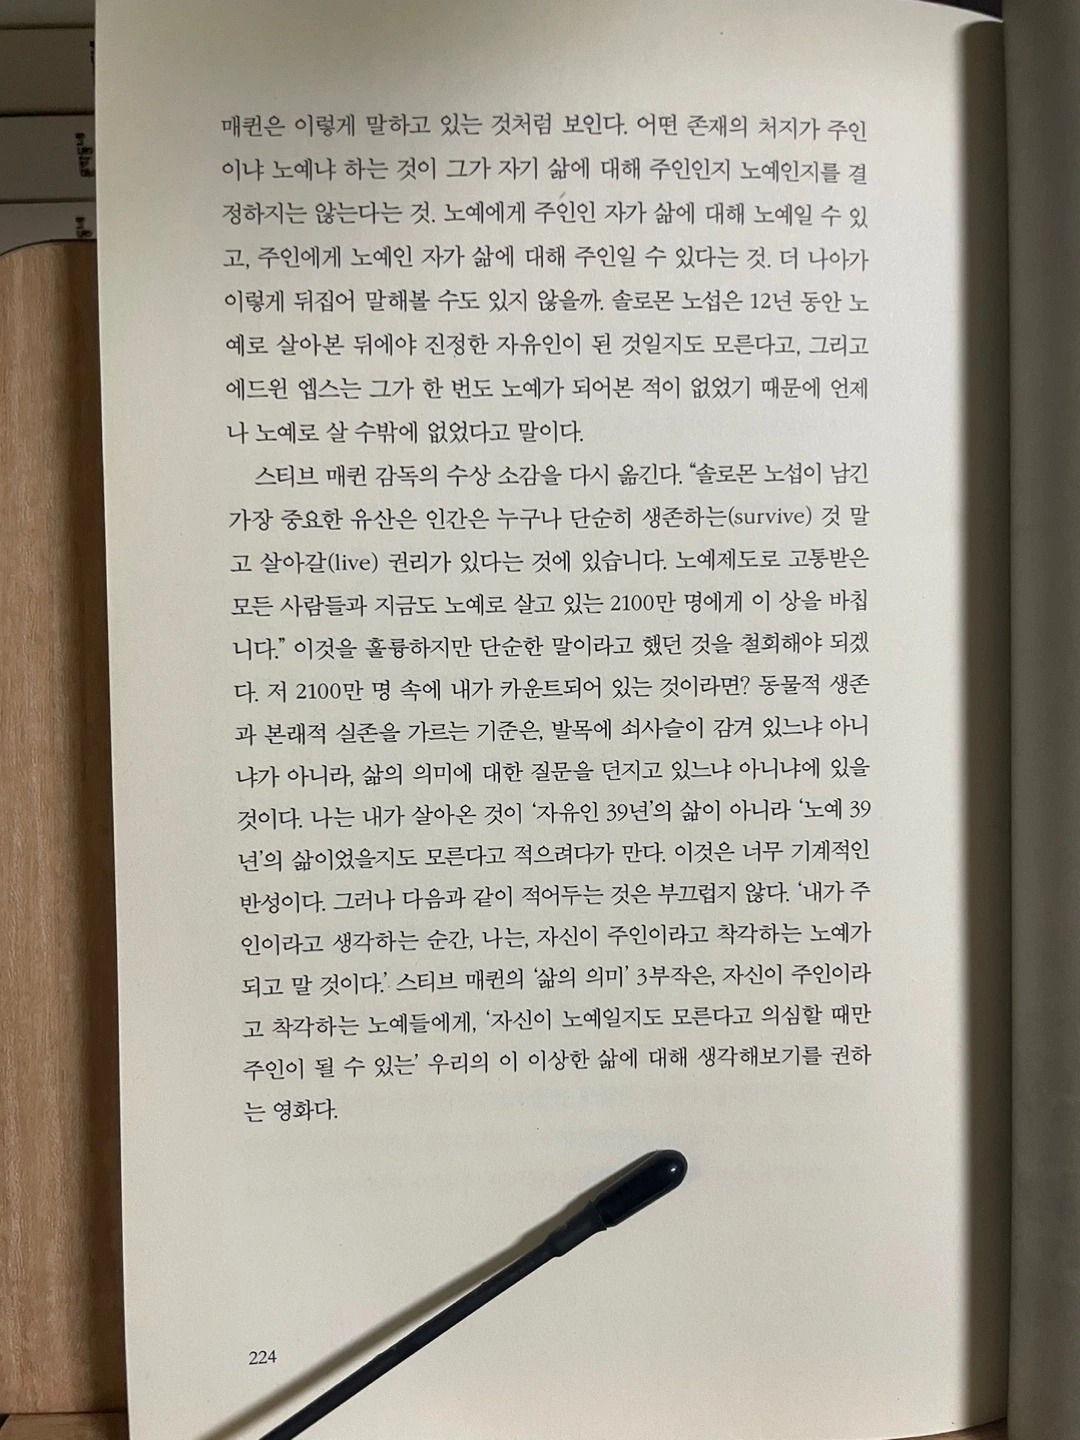 매퀸은 이렇게 말하고 있는 것처럼 보인다. 어떤 존재의 처지가 주인
이냐 노예냐 하는 것이 그가 자기 삶에 대해 주인인지 노예인지를 결
정하지는 않는다는 것. 노예에게 주인인 자가 삶에 대해 노예일 수 있
고, 주인에게 노예인 자가 삶에 대해 주인일 수 있다는 것. 더 나아가
이렇게 뒤집어 말해볼 수도 있지 않을까. 솔로몬 노섭은 12년 동안 노
예로 살아본 뒤에야 진정한 자유인이 된 것일지도 모른다고, 그리고
에드윈 엡스는 그가 한 번도 노예가 되어본 적이 없었기 때문에 언제
나 노예로 살 수밖에 없었다고 말이다.
스티브 매퀸 감독의 수상 소감을 다시 옮긴다. “솔로몬 노섭이 남긴
가장 중요한 유산은 인간은 누구나 단순히 생존하는(survive) 것 말
고 살아갈(live) 권리가 있다는 것에 있습니다. 노예제도로 고통받은
모든 사람들과 지금도 노예로 살고 있는 2100만 명에게 이 상을 바칩
니다.” 이것을 훌륭하지만 단순한 말이라고 했던 것을 철회해야 되겠
다. 저 2100만 명 속에 내가 카운트되어 있는 것이라면? 동물적 생존
과 본래적 실존을 가르는 기준은, 발목에 쇠사슬이 감겨 있느냐 아니
냐가 아니라, 삶의 의미에 대한 질문을 던지고 있느냐 아니냐에 있을
것이다. 나는 내가 살아온 것이 ‘자유인 39년’의 삶이 아니라 ‘노예 39
년’의 삶이었을지도 모른다고 적으려다가 만다. 이것은 너무 기계적인
반성이다. 그러나 다음과 같이 적어두는 것은 부끄럽지 않다. ‘내가 주
인이라고 생각하는 순간, 나는, 자신이 주인이라고 착각하는 노예가
되고 말 것이다.’ 스티브 매퀸의 ‘삶의 의미’ 3부작은, 자신이 주인이라
고 착각하는 노예들에게, ‘자신이 노예일지도 모른다고 의심할 때만
주인이 될 수 있는’ 우리의 이 이상한 삶에 대해 생각해보기를 권하
는 영화다.
224